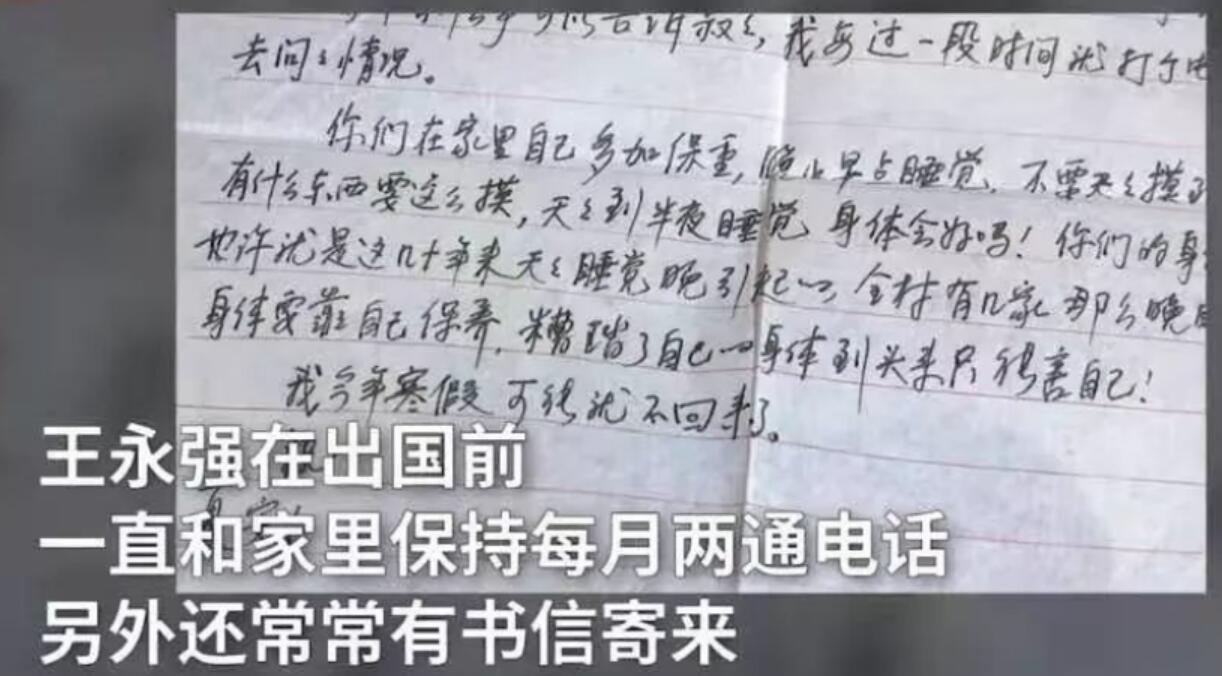 叔々，我每过一段时间就打个电
去问々情况。
你们在家里自己多加保重，晚上早点睡觉，不要天々摸到
有什么东西要这么摸，天々到半夜睡觉 身体会好吗！你们的身
也许就是这几十年来天々睡觉晚引起的，全村有几家那么晚
身体要靠自己保养，糟蹋了自己的身体到头来只能害自己！
我今年寒假可能就不回来了。
王永强在出国前
一直和家里保持每月两通电话
另外还常常有书信寄来